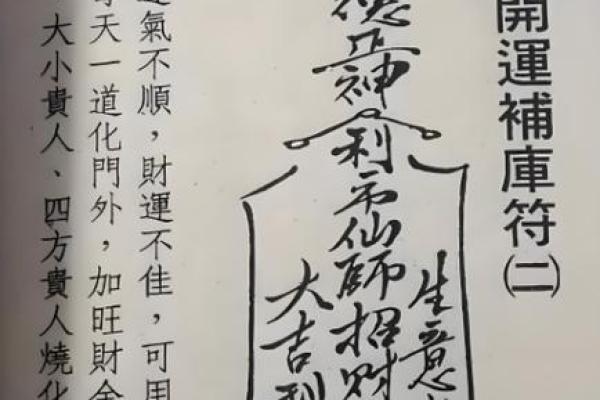 開運補庫符㈡
德正神利市仙師招財
生意
大吉利
運氣不順，財運不佳，可用
每天一道化門外，加旺財金
、大小貴人、四方貴人燒化